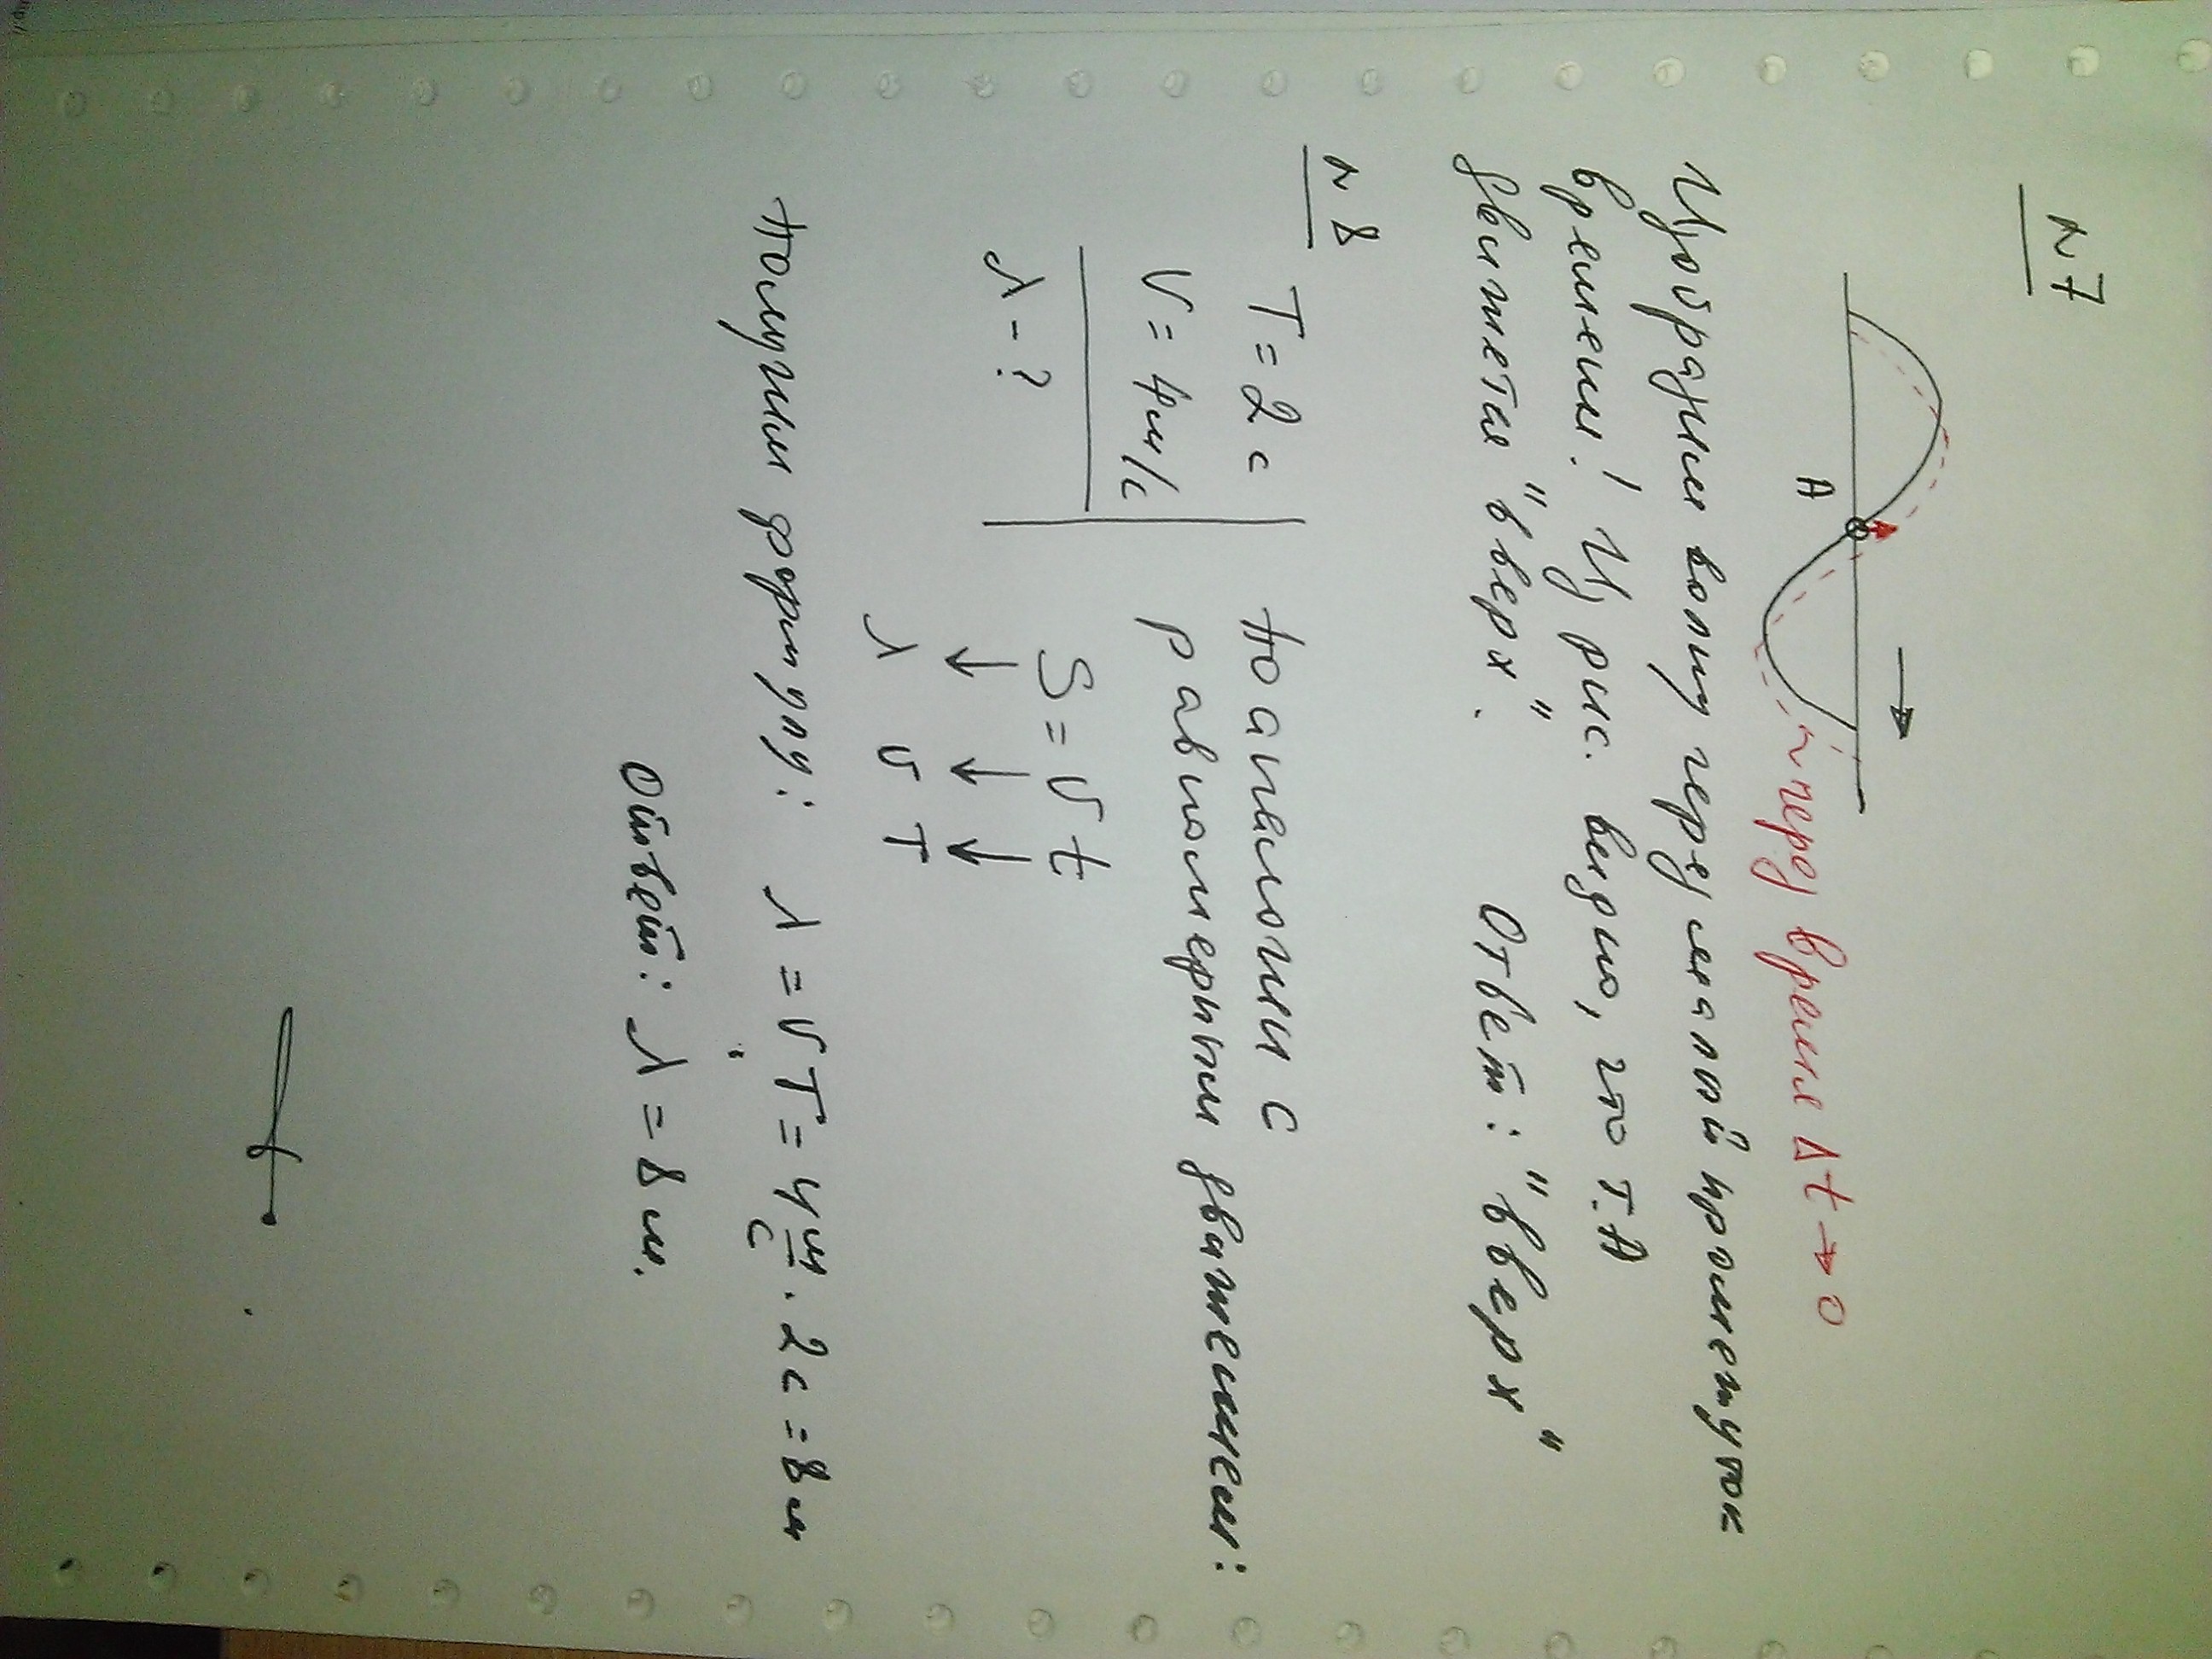 N 7
A
через время Δt → 0
Изобразим волну через малый промежуток
времени! Из рис. видно, что т. А
движется "вверх". Ответ: "вверх"
N 8
T = 2 с
V = 4 м/с
λ - ?
По аналогии с
равномерным движением:
S = V t
↓ ↓ ↓
λ V T
Получим формулу: λ = VT = 4 м/с · 2с = 8 м
Ответ: λ = 8 м.